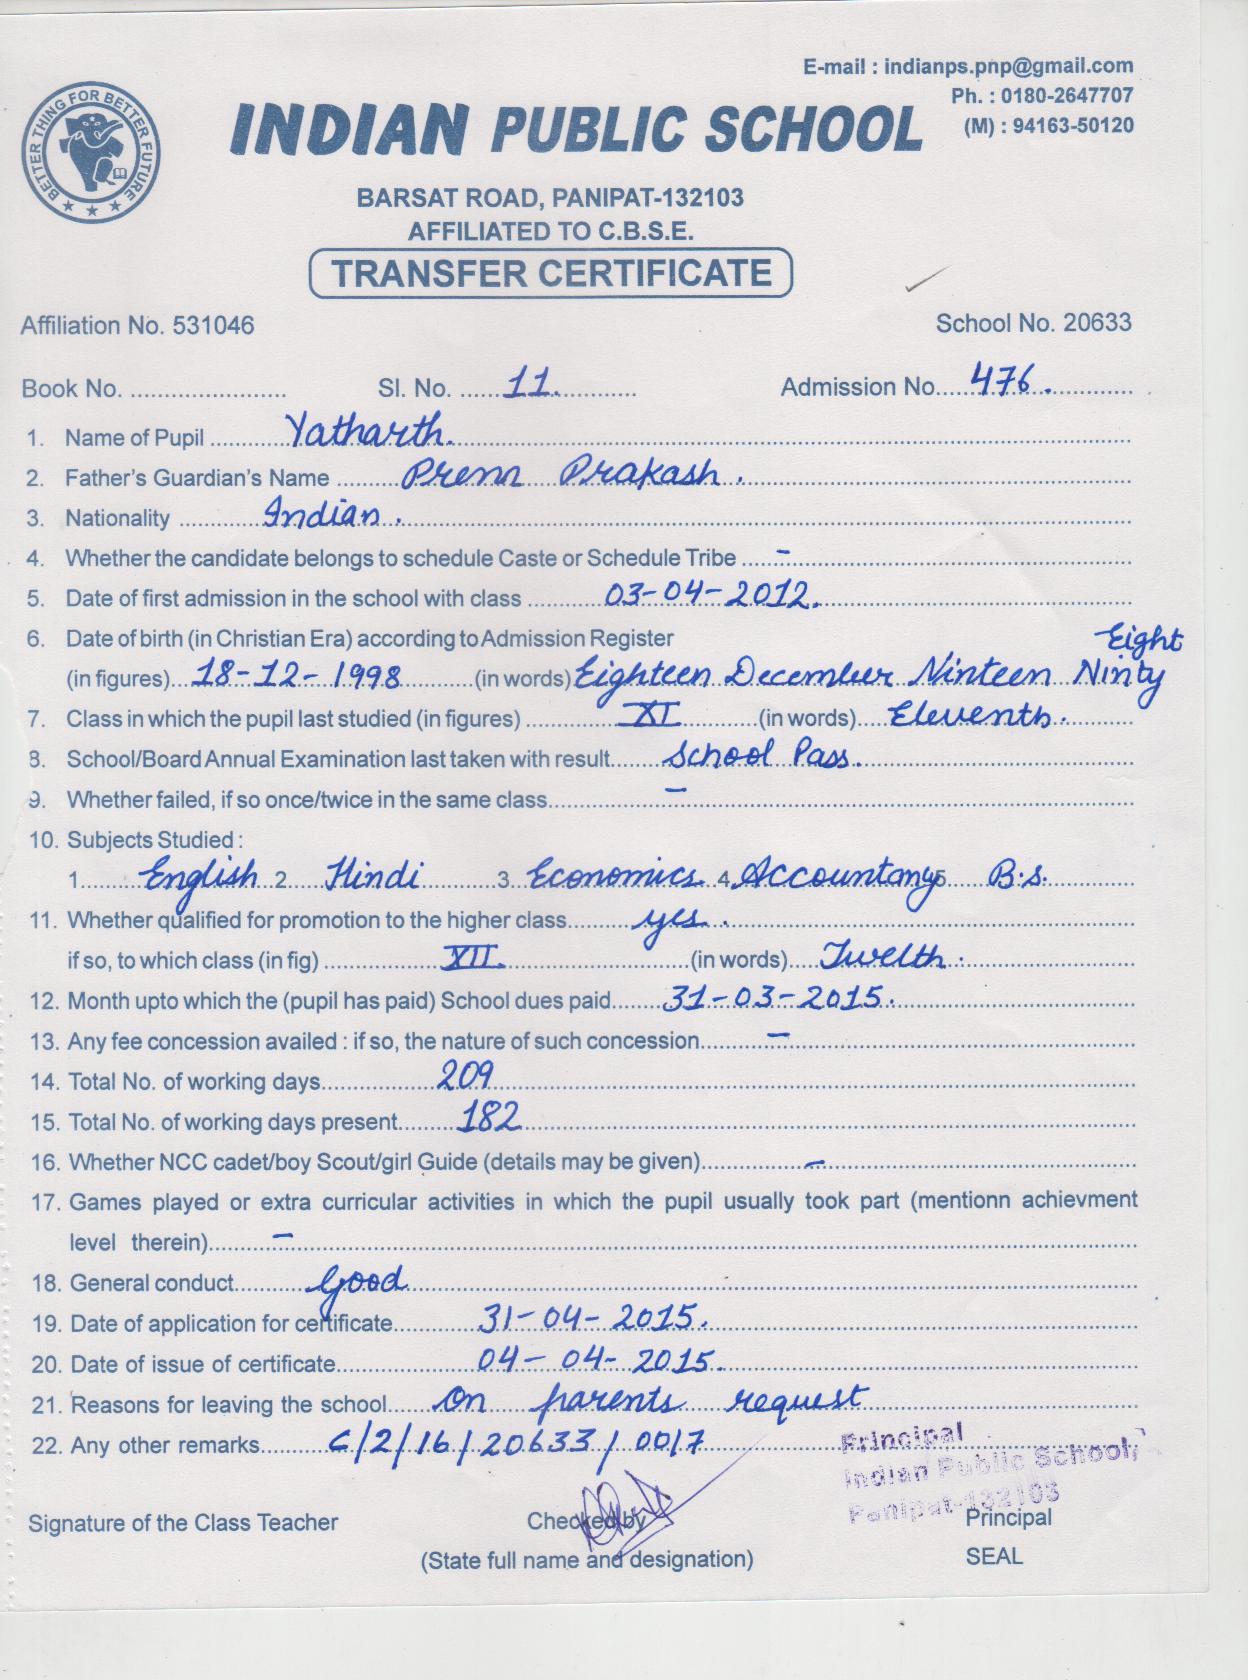 E-mail : indianps.pnp@gmail.com
Ph. : 0180-2647707
(M) : 94163-50120
BETTER THING FOR BETTER FUTURE
INDIAN PUBLIC SCHOOL
BARSAT ROAD, PANIPAT-132103
AFFILIATED TO C.B.S.E.
TRANSFER CERTIFICATE
Affiliation No. 531046 School No. 20633
Book No. ....................... Sl. No. ...... 11. ............ Admission No.... 476. ............
1. Name of Pupil ............ Yatharth.
2. Father's Guardian's Name .......... Prem Prakash.
3. Nationality ............. Indian.
4. Whether the candidate belongs to schedule Caste or Schedule Tribe ...... -
5. Date of first admission in the school with class ............ 03-04-2012.
6. Date of birth (in Christian Era) according to Admission Register Eight
(in figures)... 18-12-1998 ........... (in words) Eighteen December Ninteen Ninty
7. Class in which the pupil last studied (in figures) .............. XI ............ (in words).... Eleventh.
8. School/Board Annual Examination last taken with result........ School Pass.
9. Whether failed, if so once/twice in the same class................. -
10. Subjects Studied :
1.......... English 2..... Hindi ........... 3. Economics 4. Accountany 5...... B.S.
11. Whether qualified for promotion to the higher class.......... yes.
if so, to which class (in fig) .................. XII. .............................. (in words).... Twelth.
12. Month upto which the (pupil has paid) School dues paid........ 31-03-2015.
13. Any fee concession availed : if so, the nature of such concession.......... -
14. Total No. of working days................. 209
15. Total No. of working days present......... 182
16. Whether NCC cadet/boy Scout/girl Guide (details may be given)................ -
17. Games played or extra curricular activities in which the pupil usually took part (mentionn achievment
level therein).......... -
18. General conduct........... Good
19. Date of application for certificate............. 31-04-2015.
20. Date of issue of certificate..................... 04-04-2015.
21. Reasons for leaving the school...... On parents request
22. Any other remarks.......... C/2/16/20633/0017
Principal
Indian Public School,
Panipat-132103
Signature of the Class Teacher Checked by Principal
(State full name and designation) SEAL